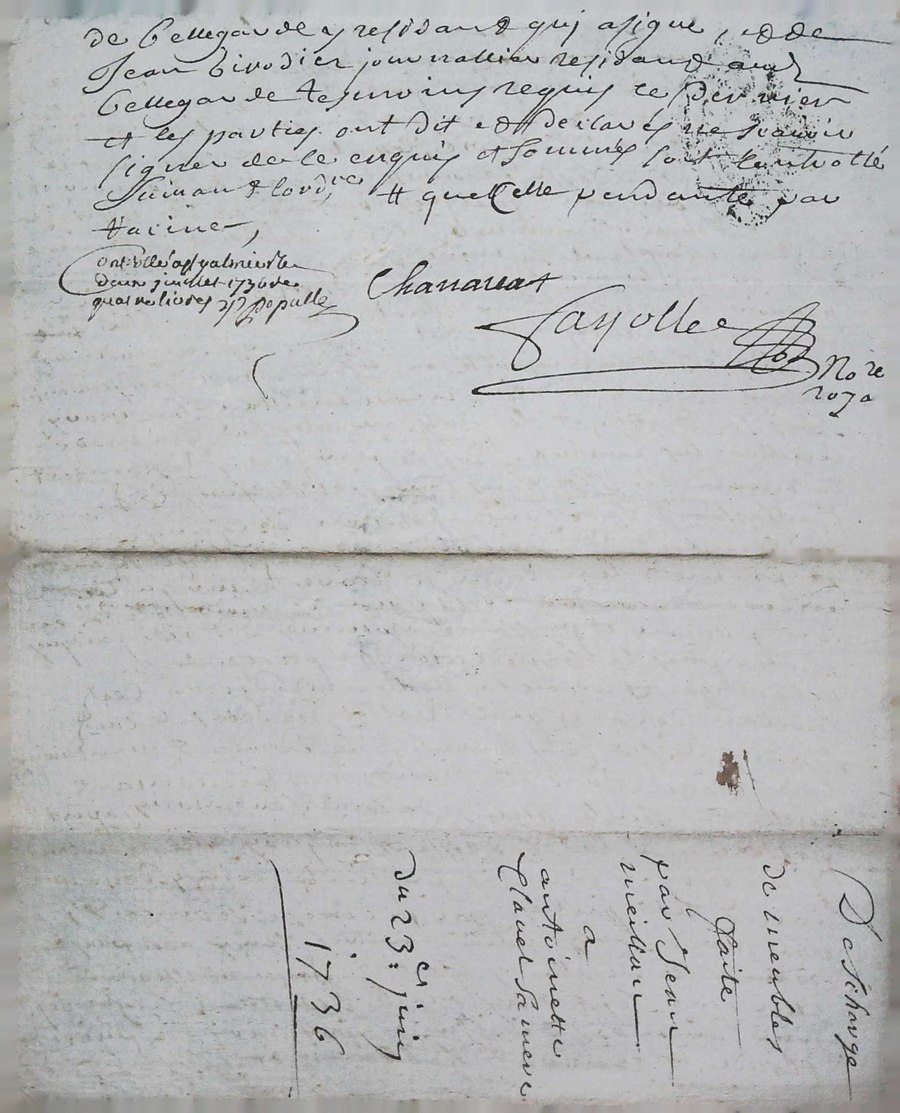 de Bellegarde y residand quj asigne, et de
Jean Tirodier journallier residand aud.
Bellegarde tesmoins requis ce dernier
et les parties ont dit et declarés ne scavoir
signer de le enquis et sommés soit controllé
suivant lord.re # quellelle pendante par
racine,
Chanarat
onrollé a St galmier le
deux juillet 1736 re
quatre livres
Populle
Fayolle
No re
roya
Descharge
de meubles
faite
par Jean
meillan
a
antoinette
Clavel sa mere
du 23: e juin
1736